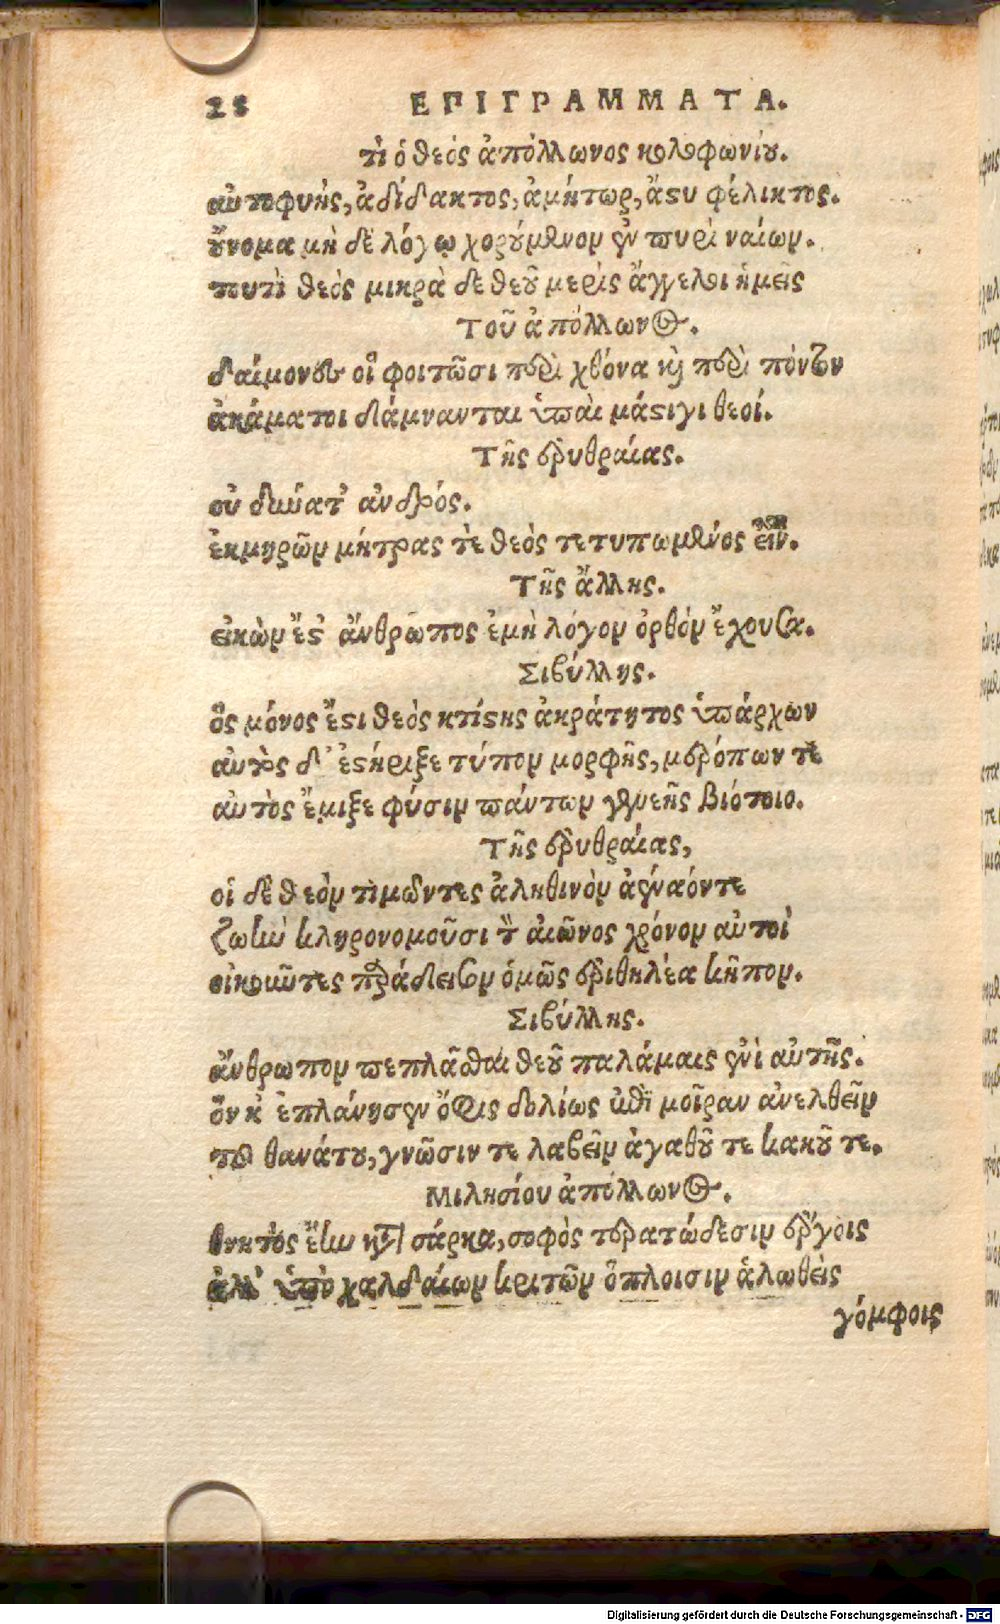 28 ΕΠΙΓΡΑΜΜΑΤΑ.
τὶ ὁ θεὸς ἀπόλλωνος κολοφωνίου.
αὐτοφυὴς, ἀδίδακτος, ἀμήτωρ, ἄστυφέλικτος.
οὔνομα μὴ δὲ λόγῳ χορούμενον ἐν πυρὶ ναίων.
τουτὶ θεὸς μικρὰ δὲ θεοῦ μερὶς ἄγγελοι ἡμεῖς
Τοῦ ἀπόλλωνος.
δαίμονες οἳ φοιτῶσι περὶ χθόνα καὶ περὶ πόντον
ἀκάματοι δάμνανται ὑπαὶ μάστιγι θεοί.
Τῆς ἐρυθραίας.
οὐ δύνατ' ἀνδρός.
ἐκμηρῶν μήτρας τὲ θεὸς τετυπωμένος
Τῆς ἄλλης.
εἰκὼν ἔστ' ἄνθρωπος ἐμὴ λόγον ὀρθὸν ἔχουσα.
Σιβύλλης.
ὃς μόνος ἔστι θεὸς κτίστης ἀκράτητος ὑπάρχων
αὐτὸς δ' ἐστήριξε τύπον μορφῆς, μερόπων τε
αὐτὸς ἔμιξε φύσιν πάντων γενεῆς βιότοιο.
Τῆς ἐρυθραίας,
οἱ δὲ θεὸν τιμῶντες ἀληθινὸν ἀέναόν τε
ζωὴν κληρονομοῦσι τὸν αἰῶνος χρόνον αὐτοὶ
οἰκοῦντες παράδεισον ὁμῶς ἐριθηλέα κῆπον.
Σιβύλλης.
ἄνθρωπον πεπλᾶσθαι θεοῦ παλάμαις ἐνὶ αὐτῆς.
ὅν κ' ἐπλάνησεν ὄφις δολίως ἐπὶ μοῖραν ἀνελθεῖν
τοῦ θανάτου, γνῶσιν τε λαβεῖν ἀγαθοῦ τε κακοῦ τε.
Μιλησίου ἀπόλλωνος.
θνητὸς ἔην κατὰ σάρκα, σοφὸς τερατώδεσιν ἔργοις
ἀλλ' ὑπὸ χαλδαίων κριτῶν ὅπλοισιν ἁλωθεὶς
γόμφοις
Digitalisierung gefördert durch die Deutsche Forschungsgemeinschaft - DFG